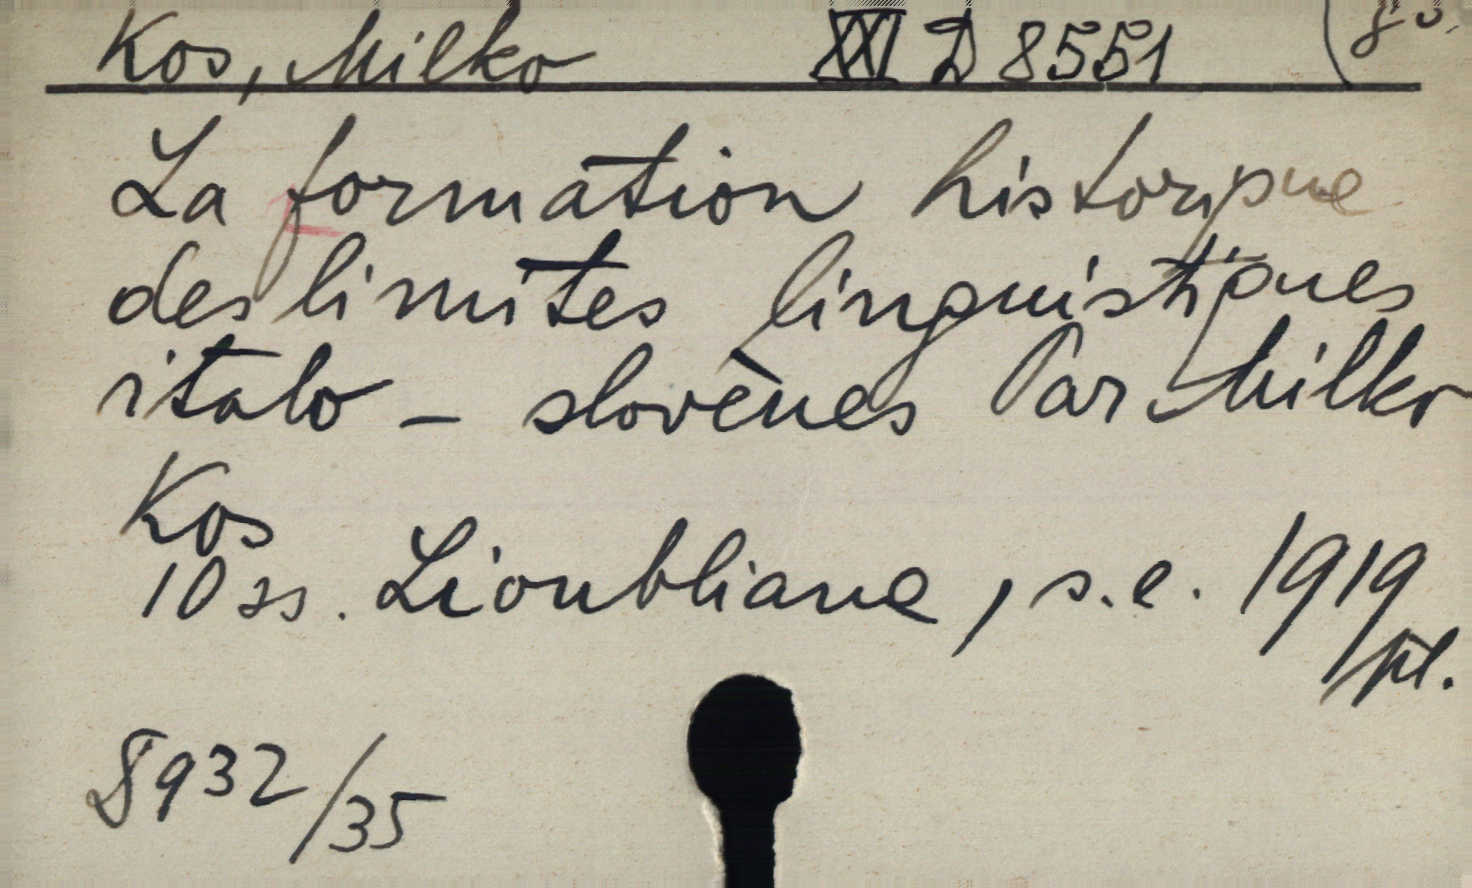 Kos, Milko XXI D 8551
La formation historique
des limites linguistiques
italo - slovènes Par Milko
Kos
10 ss. Lioubliana, s.e. 1919
pl.
8932/35